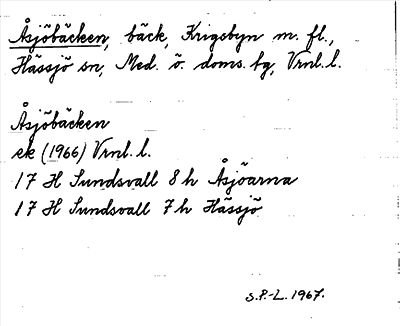 Åsjöbäcken, bäck, Krigsbyn m. fl.,
Hässjö sn, Med. ö. doms. tg, Vrnl. l.
Åsjöbäcken
ek (1966) Vrnl. l.
17 H Sundsvall 8 h Åsjöarna
17 H Sundsvall 7 h Hässjö
S.P.-L. 1967.